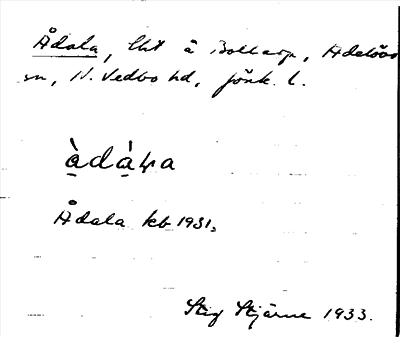 Ådala, lht å Bollarp, Adelövs
sn, N. Vedbo hd, Jönk. l.
àdàɬa
Ådala kb 1931.
Stig Stjärne 1933.